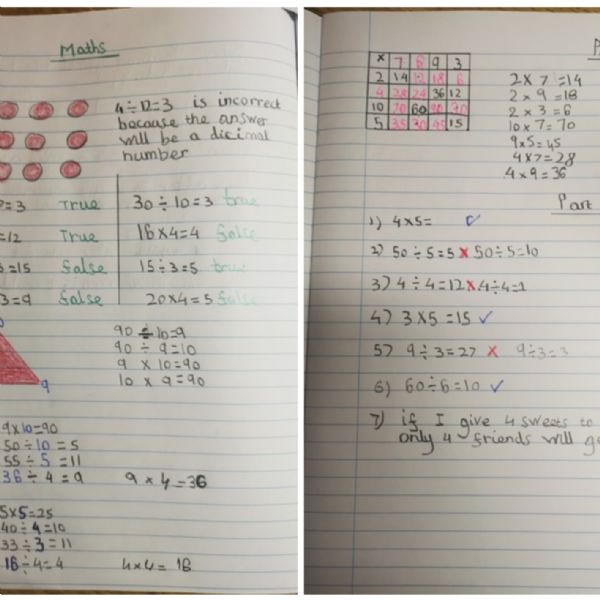 Maths
4÷12=3 is incorrect
because the answer
will be a dicimal
number
=3 True 30÷10=3 true
=12 True 16×4=4 false
=15 false 15÷3=5 true
3=9 false 20×4=5 false
90÷10=9
90÷9=10
9×10=90
10×9=90
9
9×10=90
50÷10=5
55÷5=11
36÷4=9 9×4=36
5×5=25
40÷4=10
33÷3=11
16÷4=4 4×4=16
× 7 6 9 3
2 14 12 18 6
4 28 24 36 12
10 70 60 90 30
5 35 30 45 15
2×7=14
2×9=18
2×3=6
10×7=70
9×5=45
4×7=28
4×9=36
Part
1) 4×5= ✓
2) 50÷5=5 × 50÷5=10
3) 4÷4=12 × 4÷4=1
4) 3×5=15 ✓
5) 9÷3=27 × 9÷3=3
6) 60÷6=10 ✓
7) if I give 4 sweets to
only 4 friends will ge